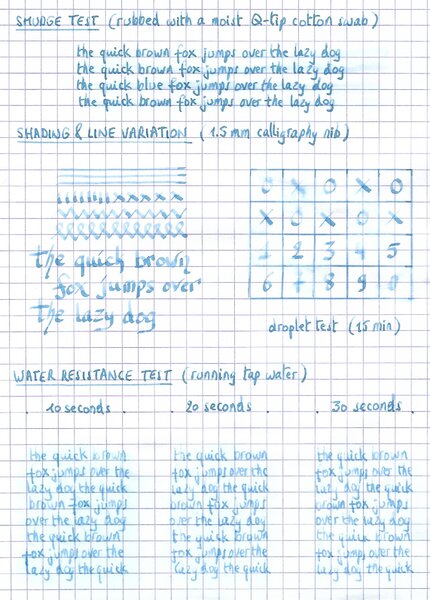 SMUDGE TEST (rubbed with a moist Q-tip cotton swab)
the quick brown fox jumps over the lazy dog
the quick brown fox jumps over the lazy dog
the quick blue fox jumps over the lazy dog
the quick brown fox jumps over the lazy dog
SHADING & LINE VARIATION (1.5 mm calligraphy nib)
the quick brown
fox jumps over
the lazy dog
O X O X O
X O X O X
1 2 3 4 5
6 7 8 9
droplet test (15 min)
WATER RESISTANCE TEST (running tap water)
10 seconds
20 seconds
30 seconds
the quick brown
fox jumps over the
lazy dog the quick
brown fox jumps
over the lazy dog
the quick brown
fox jumps over the
lazy dog the quick
the quick brown
fox jumps over the
lazy dog the quick
brown fox jumps
over the lazy dog
the quick brown
fox jumps over the
lazy dog the quick
the quick brown
fox jumps over the
lazy dog the quick
brown fox jumps
over the lazy dog
the quick brown
fox jumps over the
lazy dog the quick